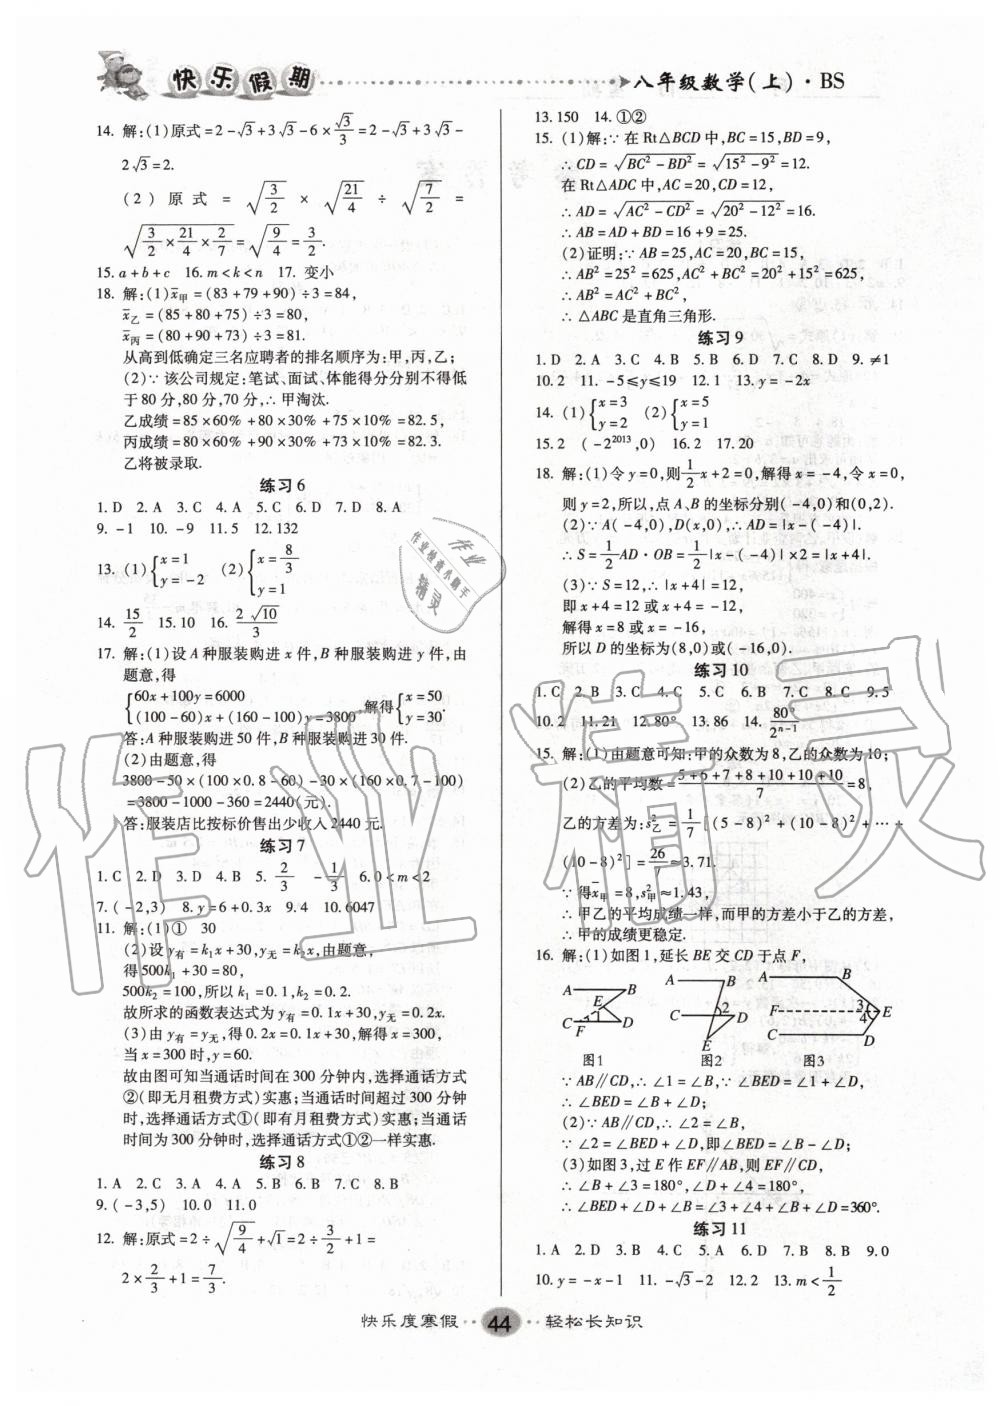 快乐假期 八年级数学(上)·BS
14. 解:(1)原式=2-√3+3√3-6×√3/3=2-√3+3√3-
2√3=2.
(2)原式=√(3/2)×√(21/4)÷√(7/2)=
√(3/2×21/4×2/7)=√(9/4)=3/2.
15. a+b+c 16. m<k<n 17. 变小
18. 解:(1)x̄甲=(83+79+90)÷3=84,
x̄乙=(85+80+75)÷3=80,
x̄丙=(80+90+73)÷3=81.
从高到低确定三名应聘者的排名顺序为:甲,丙,乙;
(2)∵该公司规定:笔试、面试、体能得分分别不得低
于80分,80分,70分,∴甲淘汰.
乙成绩=85×60%+80×30%+75×10%=82.5,
丙成绩=80×60%+90×30%+73×10%=82.3.
乙将被录取.
练习6
1. D 2. A 3. C 4. A 5. C 6. D 7. D 8. A
9. -1 10. -9 11. 5 12. 132
13. (1){x=1 y=-2 (2){x=8/3 y=1
14. 15/2 15. 10 16. 2√10/3
17. 解:(1)设A种服装购进x件,B种服装购进y件,由
题意,得
{60x+100y=6000 (100-60)x+(160-100)y=3800,解得{x=50 y=30.
答:A种服装购进50件,B种服装购进30件.
(2)由题意,得
3800-50×(100×0.8-60)-30×(160×0.7-100)
=3800-1000-360=2440(元).
答:服装店比按标价售出少收入2440元.
练习7
1. C 2. D 3. D 4. B 5. 2/3 -1/3 6. 0<m<2
7. (-2,3) 8. y=6+0.3x 9. 4 10. 6047
11. 解:(1)① 30
(2)设y有=k₁x+30,y无=k₂x,由题意,
得500k₁+30=80,
500k₂=100,所以k₁=0.1,k₂=0.2.
故所求的函数表达式为y有=0.1x+30,y无=0.2x.
(3)由y有=y无,得0.2x=0.1x+30,解得x=300,
当x=300时,y=60.
故由图可知当通话时间在300分钟内,选择通话方式
②(即无月租费方式)实惠;当通话时间超过300分钟
时,选择通话方式①(即有月租费方式)实惠;当通话
时间为300分钟时,选择通话方式①②一样实惠.
练习8
1. A 2. C 3. A 4. A 5. B 6. B 7. C 8. B
9. (-3,5) 10. 0 11. 0
12. 解:原式=2÷√(9/4)+√1=2÷3/2+1=
2×2/3+1=7/3.
13. 150 14. ①②
15. (1)解:∵在Rt△BCD中,BC=15,BD=9,
∴CD=√(BC²-BD²)=√(15²-9²)=12.
在Rt△ADC中,AC=20,CD=12,
∴AD=√(AC²-CD²)=√(20²-12²)=16.
∴AB=AD+BD=16+9=25.
(2)证明:∵AB=25,AC=20,BC=15,
∴AB²=25²=625,AC²+BC²=20²+15²=625,
∴AB²=AC²+BC².
∴△ABC是直角三角形.
练习9
1. D 2. A 3. C 4. B 5. B 6. D 7. C 8. D 9. ≠1
10. 2 11. -5≤y≤19 12. 1 13. y=-2x
14. (1){x=3 y=2 (2){x=5 y=1
15. 2 (-2²⁰¹³,0) 16. 2 17. 20
18. 解:(1)令y=0,则1/2x+2=0,解得x=-4,令x=0,
则y=2,所以,点A、B的坐标分别(-4,0)和(0,2).
(2)∵A(-4,0),D(x,0),∴AD=|x-(-4)|.
∴S=1/2AD·OB=1/2|x-(-4)|×2=|x+4|.
(3)∵S=12,∴|x+4|=12,
即x+4=12或x+4=-12,
解得x=8或x=-16,
所以D的坐标为(8,0)或(-16,0).
练习10
1. C 2. B 3. C 4. C 5. C 6. B 7. C 8. C 9. 5
10. 2 11. 21 12. 80° 13. 86 14. 80°/2ⁿ⁻¹
15. 解:(1)由题意可知:甲的众数为8,乙的众数为10;
(2)乙的平均数=(5+6+7+8+10+10+10)/7=8,
乙的方差为:s²乙=1/7[(5-8)²+(10-8)²+…+
(10-8)²]=26/7≈3.71.
∵得x̄甲=8,s²甲≈1.43,
∴甲乙的平均成绩一样,而甲的方差小于乙的方差,
∴甲的成绩更稳定.
16. 解:(1)如图1,延长BE交CD于点F,
A B E C F D 图1
A B 2 C D E 图2
A B F 3 4 E C D 图3
∵AB∥CD,∴∠1=∠B,∵∠BED=∠1+∠D,
∴∠BED=∠B+∠D.
(2)∵AB∥CD,∴∠2=∠B,
∵∠2=∠BED+∠D,即∠BED=∠B-∠D;
(3)如图3,过E作EF∥AB,则EF∥CD,
∴∠B+∠3=180°,∠D+∠4=180°,
∴∠BED+∠D+∠B=∠3+∠4+∠B+∠D=360°.
练习11
1. A 2. D 3. B 4. C 5. A 6. D 7. B 8. B 9. 0
10. y=-x-1 11. -√3-2 12. 2 13. m<1/2
快乐度寒假··44··轻松长知识
作业精灵
作业 作业检查小助手 精灵